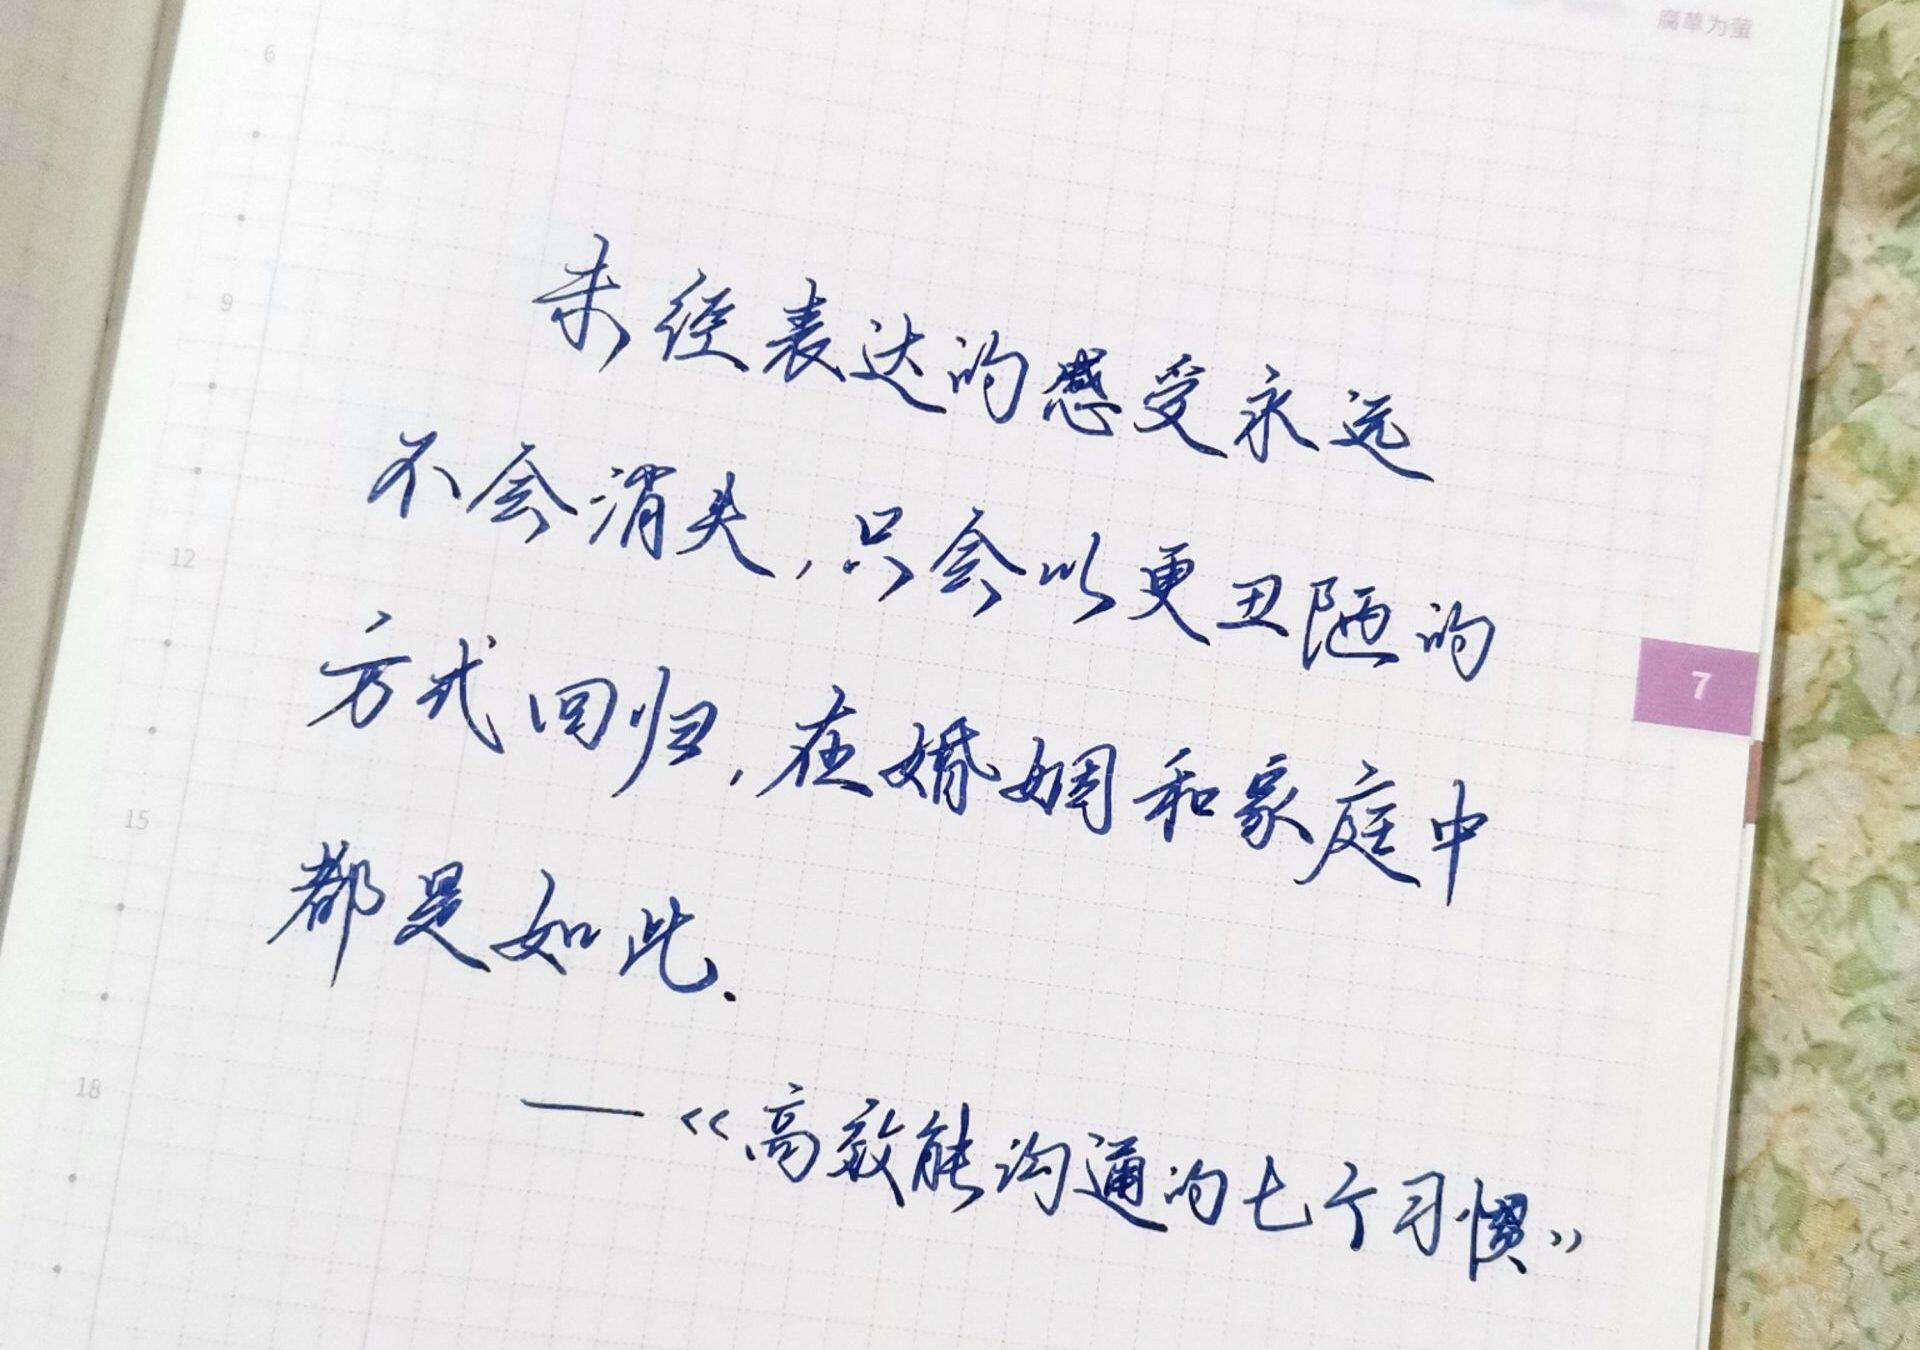 腐草为萤
6
9
12
15
18
7
未经表达的感受永远
不会消失,只会以更丑陋的
方式回归,在婚姻和家庭中
都是如此.
—《高效能沟通的七个习惯》